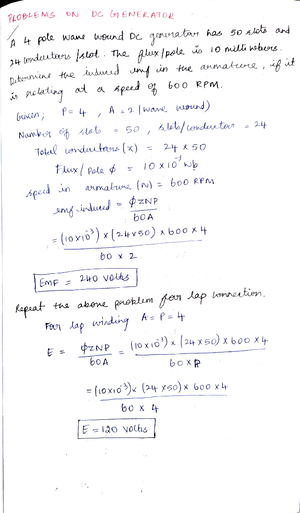 PROBLEMS ON DC GENERATOR
A 4 pole wave wound DC generator has 50 slots and
24 conductors/slot. The flux/pole is 10 milli webers.
Determine the induced emf in the armature, if it
is rotating at a speed of 600 RPM.
Given; P = 4 , A = 2 (wave wound)
Number of slots = 50 , slots/conductor = 24
Total conductors (z) = 24 x 50
Flux/Pole ϕ = 10 x 10⁻³ Wb
speed in armature (N) = 600 RPM
emf induced = ϕZNP
60A
= (10x10⁻³) x (24x50) x 600 x 4
60 x 2
EMF = 240 Volts
Repeat the above problem for lap connection.
For lap winding A = P = 4
E = ϕZNP = (10x10⁻³) x (24x50) x 600 x 4
60A 60 x A
= (10x10⁻³) x (24 x50) x 600 x 4
60 x 4
E = 120 Volts